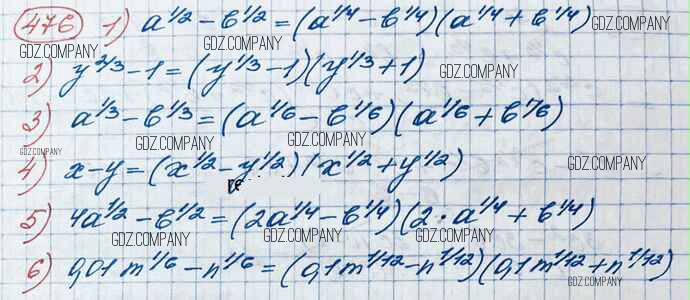 476 1) a^1/2 - b^1/2 = (a^1/4 - b^1/4)(a^1/4 + b^1/4)
2) y^2/3 - 1 = (y^1/3 - 1)(y^1/3 + 1)
3) a^1/3 - b^1/3 = (a^1/6 - b^1/6)(a^1/6 + b^1/6)
4) x - y = (x^1/2 - y^1/2)(x^1/2 + y^1/2)
5) 4a^1/2 - b^1/2 = (2a^1/4 - b^1/4)(2·a^1/4 + b^1/4)
6) 0,01 m^1/6 - n^1/6 = (0,1m^1/12 - n^1/12)(0,1m^1/12 + n^1/12)
GDZ.COMPANY
GDZ.COMPANY
GDZ.COMPANY
GDZ.COMPANY
GDZ.COMPANY
GDZ.COMPANY
GDZ.COMPANY
GDZ.COMPANY
GDZ.COMPANY
GDZ.COMPANY
GDZ.COMPANY
GDZ.COMPANY
GDZ.COMPANY
GDZ.COMPANY